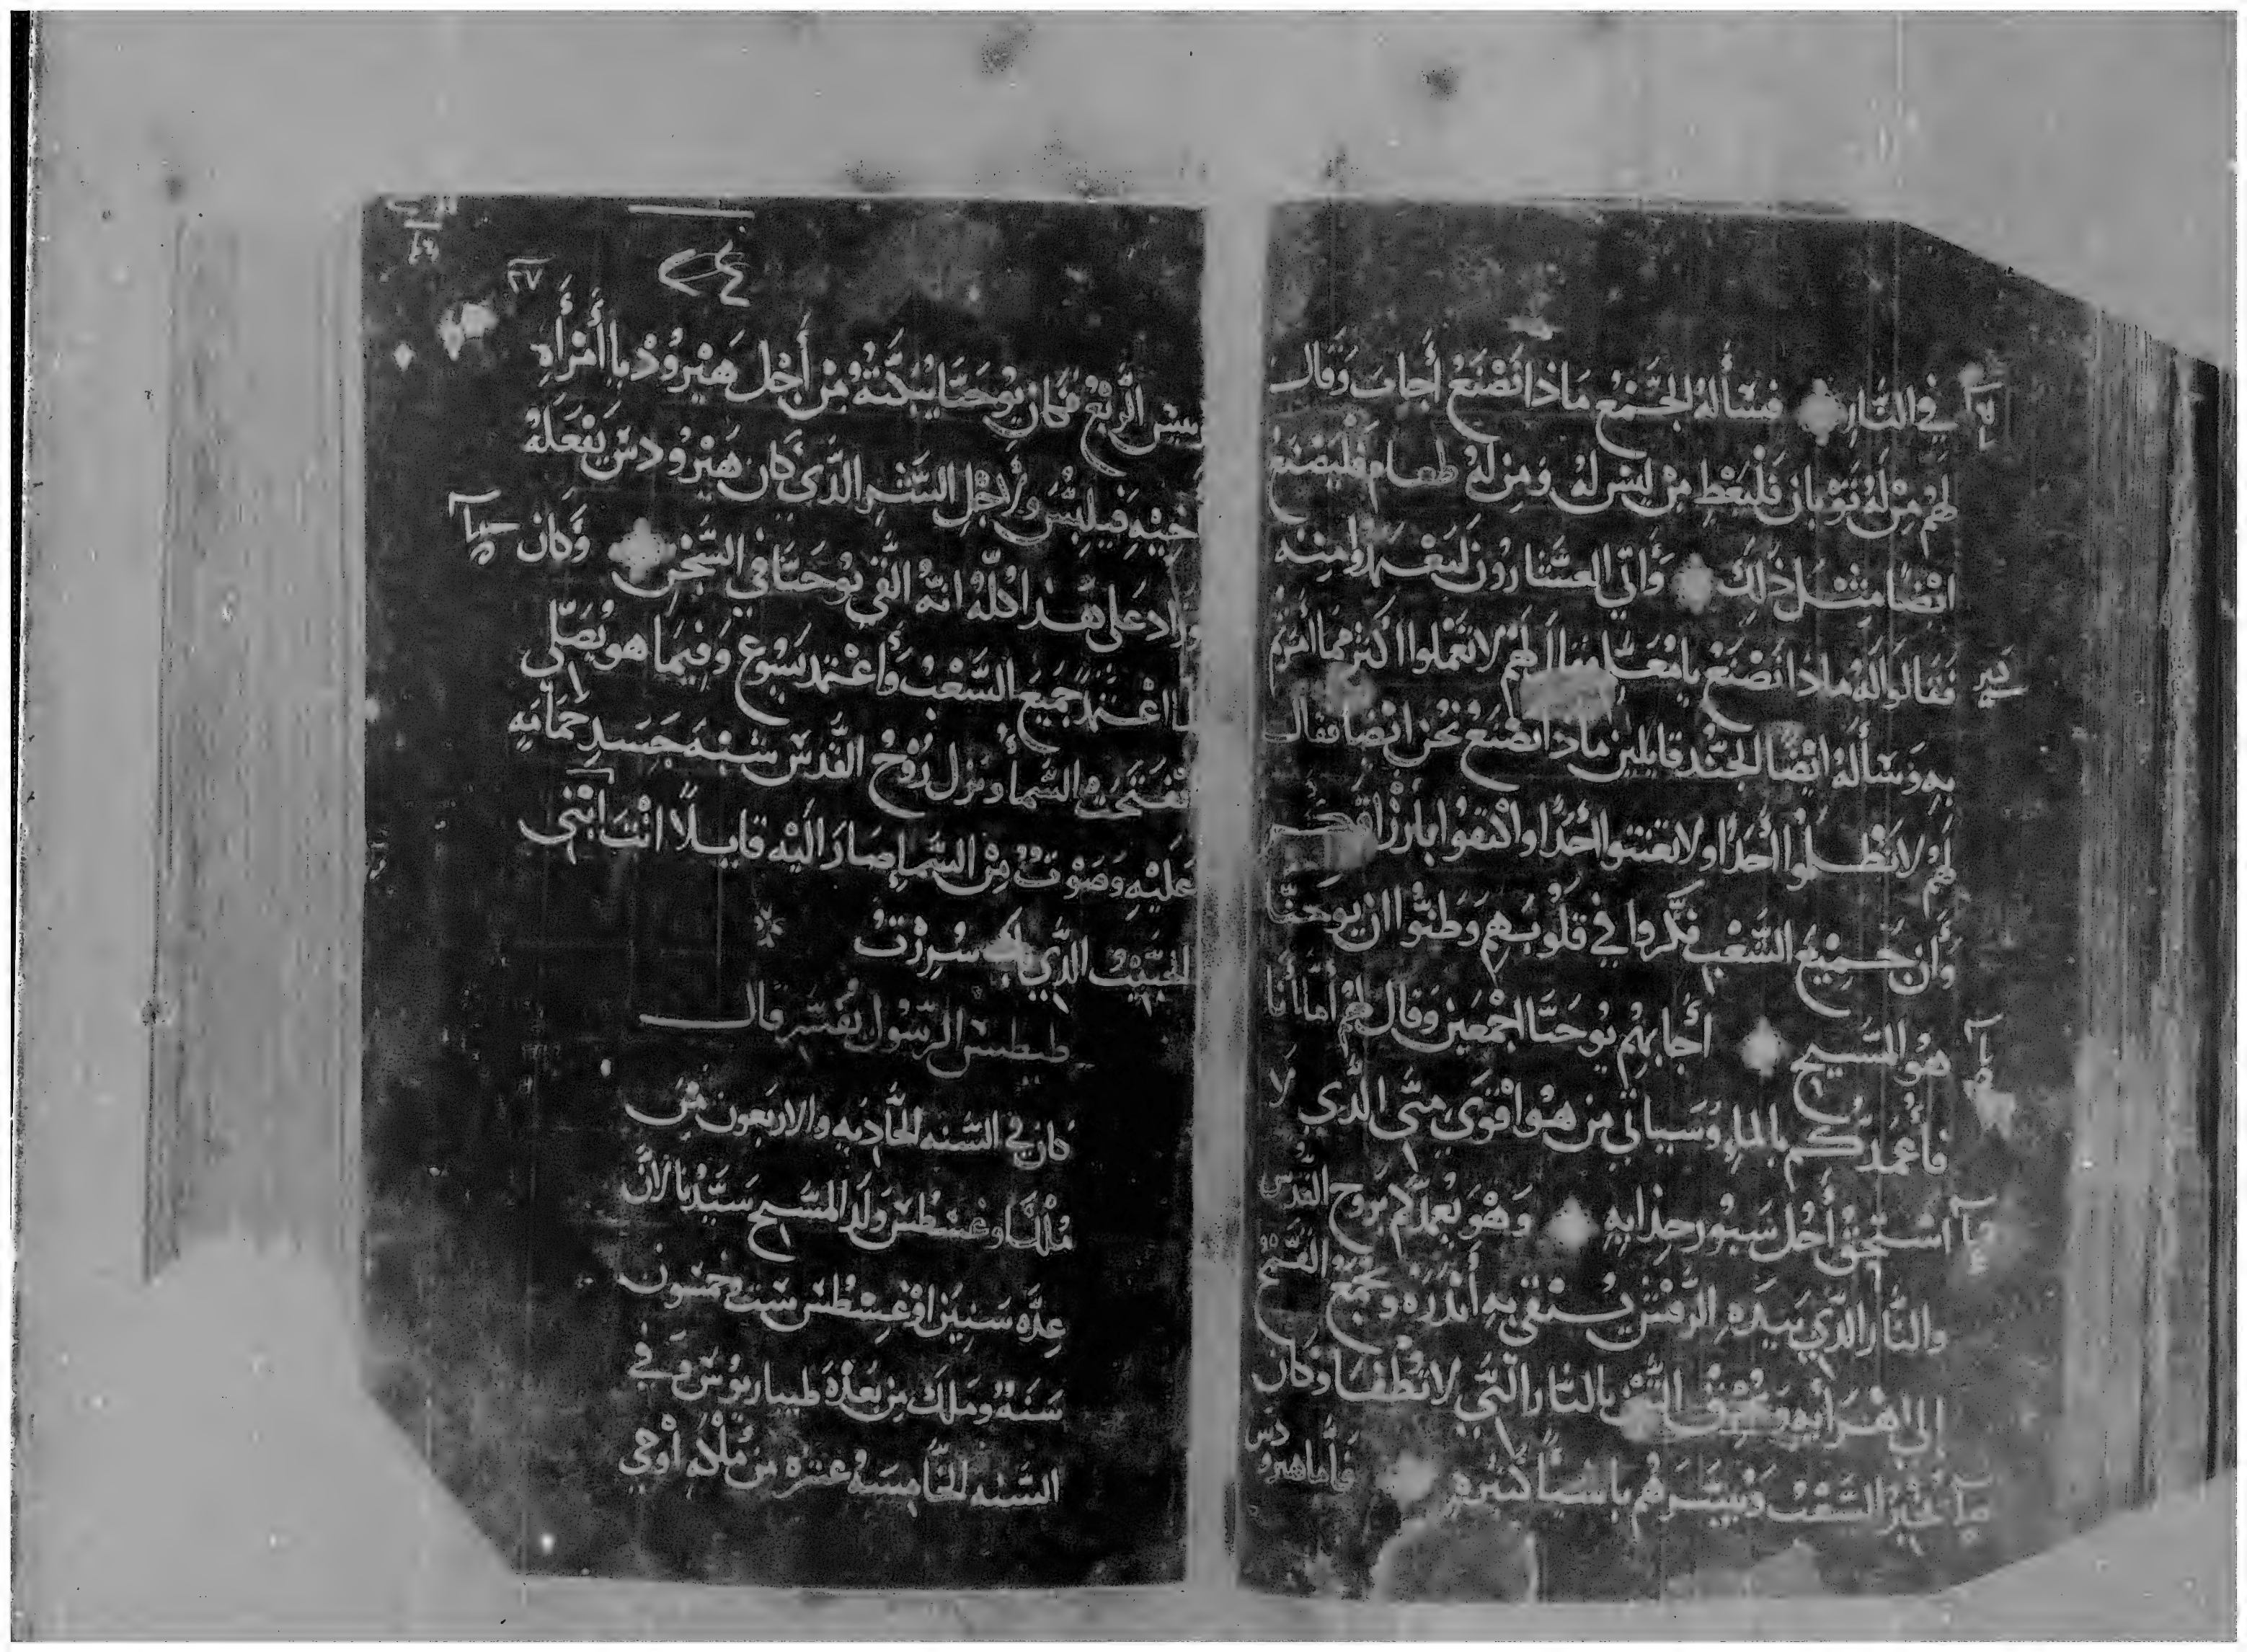 في النار فسأله الجمع ماذا نصنع أجاب وقال
لهم من له ثوبان فليعط من ليس له ومن له طعام فليصنع
ايضا مثل ذلك وأتي العشارون ليعتمدوا منه
فقالوا له ماذا نصنع يا معلم فقال لهم لا تعملوا اكثر مما امرتم
به وسأله ايضا الجند قايلين ماذا نصنع نحن ايضا فقال
لهم لا تظلموا احدا ولا تعنتوا احدا واكتفوا بارزاقكم
وأن جميع الشعب فكروا في قلوبهم وظنوا ان يوحنا
هو المسيح أجابهم يوحنا اجمعين وقال لهم أما أنا
فأعمدكم بالماء وسياتي من هو اقوى منى الذى لا
استحق أحل سيور حذايه وهو يعمدكم بروح القدس
والنار الذي بيده الرفش ينقي به أندره ويجمع القمح
إلى اهرايه ويحرق التبن بالنار التي لا تطفا وكان
يخبر الشعب ويبشرهم باشيا كثيره فأما هيرودس
٢٤
٢٧
ييس الربع فكان يوحنا يبكته من أجل هيروديا أمرأه
اخيه فيلبس ولاجل الشر الذي كان هيرودس يفعله
وزاد على هذا كله انه القي يوحنا في السجن وكان
لما اعتمد جميع الشعب وأعتمد يسوع وفيما هو يصلي
انفتحت السما ونزل روح القدس شبه جسد حمامه
عليه وصوت من السما صار اليه قايلا انت ابني
الحبيب الذي بك سررت
طيطس الرسول يفسر قال
كان في السنه الحاديه والاربعون من
ملك اوغسطس ولد المسيح سيدنا لأن
عده سنين اوغسطس ست وخمسون
سنة وملك من بعده طيباريوس وفي
السنه الخامسه عشره من ملكه أوحي